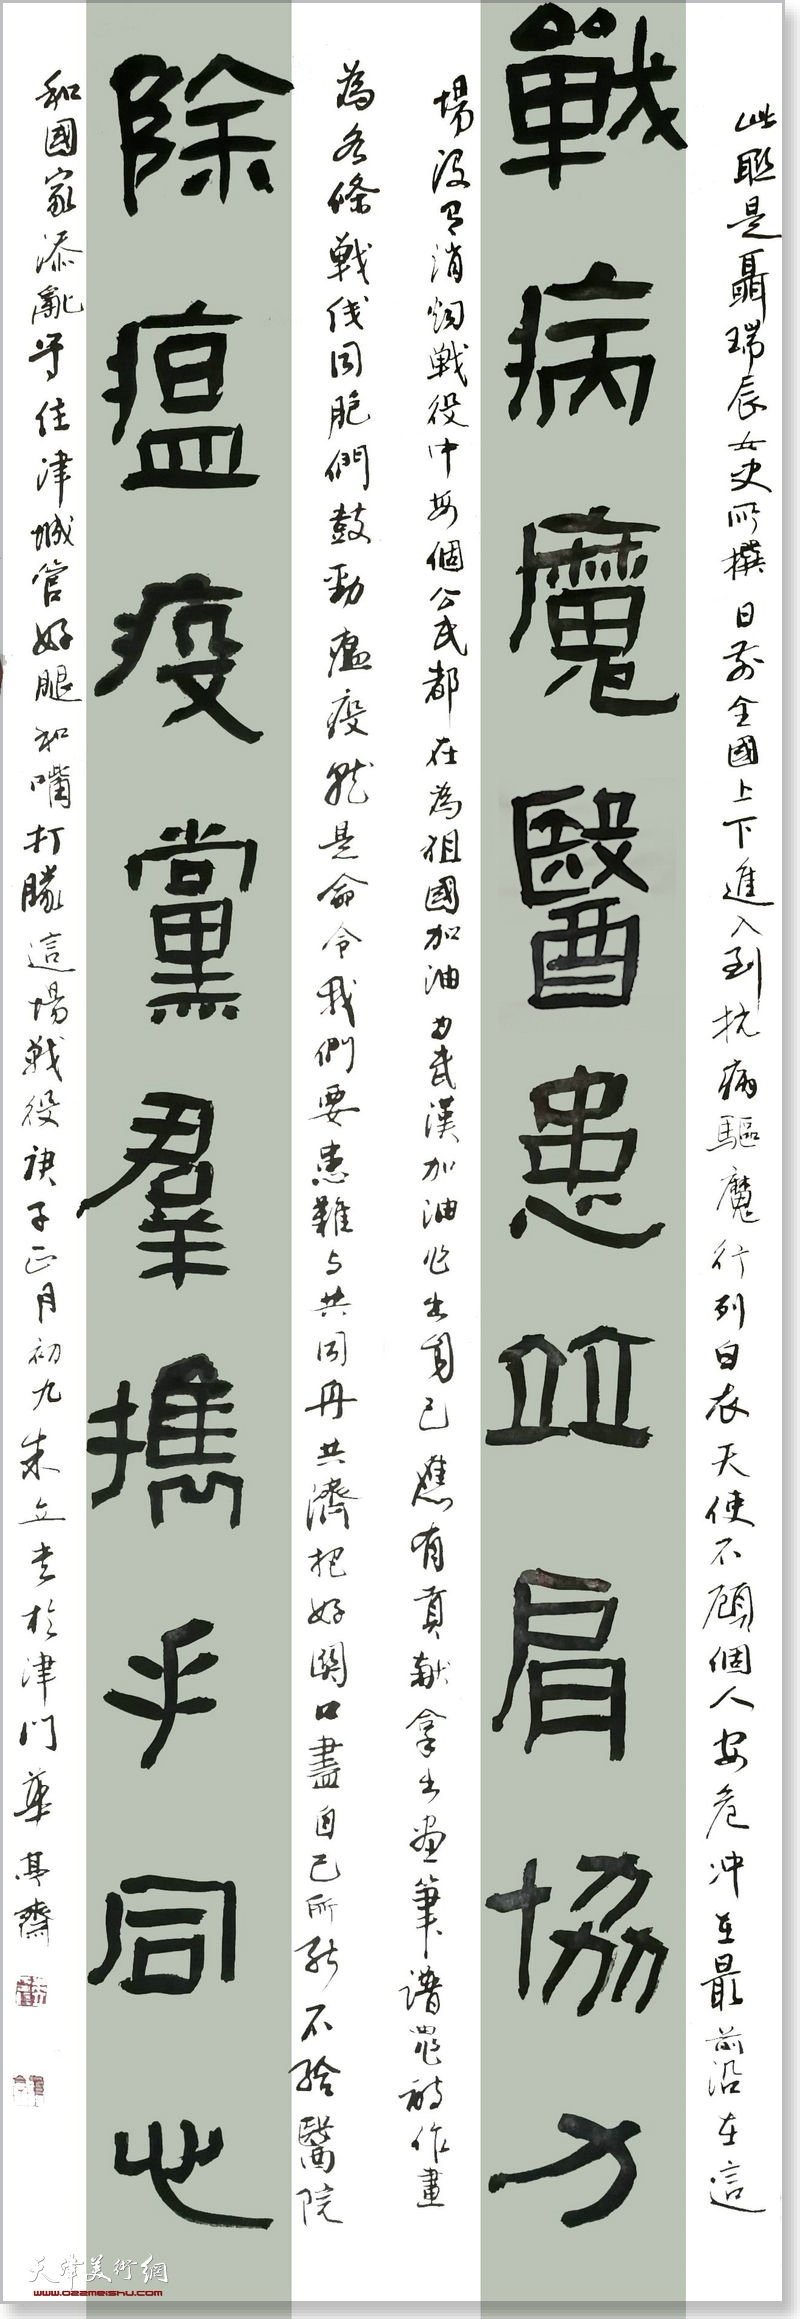 此聯是聶瑞辰女史所撰日前全國上下進入到抗病驅魔行列白衣天使不顧個人安危冲在最前沿在這
戰病魔醫患並肩協力
場没有消烟戰役中每個公民都在為祖國加油為武漢加油作出自己應有貢献拿出画筆譜寫詩作畫
為各條戰线同胞們鼓勁瘟疫就是命令我們要患難与共同舟共濟把好關口盡自己所能不給醫院
除瘟疫黨羣攜手同心
和國家添亂守住津城管好腿和嘴打勝這場戰役庚子正月初九朱立書於津門華
齋
天津美術網
www.022meishu.com